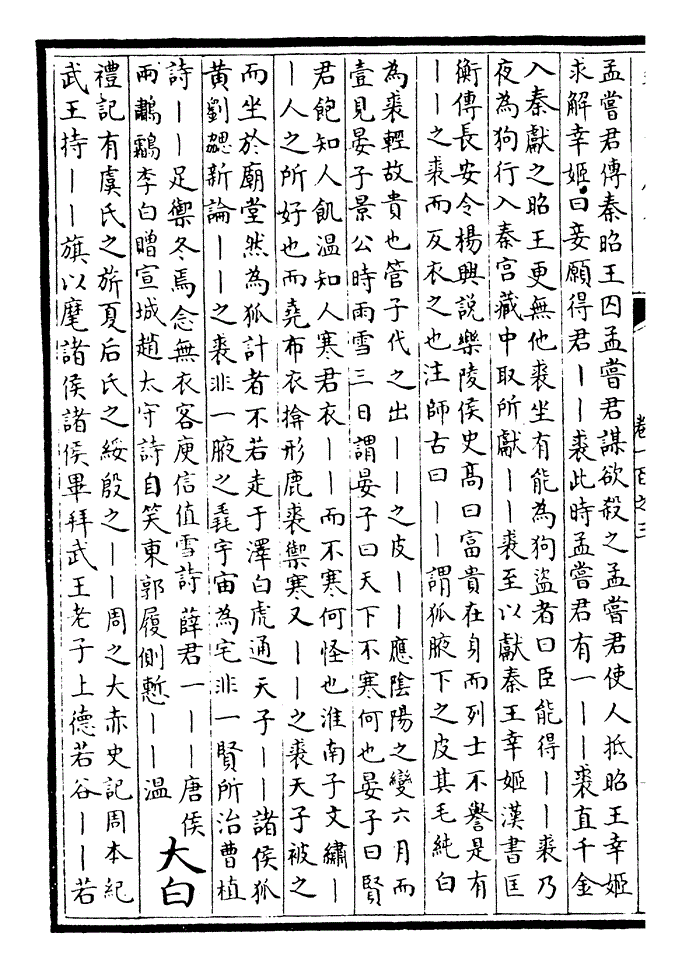 卷一百之三
孟嘗君傳秦昭王囚孟嘗君謀欲殺之孟嘗君使人抵昭王幸姬
求解幸姬曰妾願得君丨丨裘此時孟嘗君有一丨丨裘直千金
入秦獻之昭王更無他裘坐有能為狗盜者曰臣能得丨丨裘乃
夜為狗行入秦宮藏中取所獻丨丨裘至以獻秦王幸姬漢書匡
衡傳長安令楊興說樂陵侯史髙曰富貴在身而列士不譽是有
丨丨之裘而反衣之也注師古曰丨丨謂狐腋下之皮其毛純白
為裘輕故貴也管子代之出丨丨之皮丨丨應陰陽之變六月而
壹見晏子景公時雨雪三日謂晏子曰天下不寒何也晏子曰賢
君飽知人飢温知人寒君衣丨丨而不寒何怪也淮南子文繡丨
丨人之所好也而堯布衣揜形鹿裘禦寒又丨丨之裘天子被之
而坐於廟堂然為狐計者不若走于澤白虎通天子丨丨諸侯狐
黄劉勰新論丨丨之裘非一腋之毳宇宙為宅非一賢所治曹植
詩丨丨足禦冬焉念無衣客庾信值雪詩薛君一丨丨唐侯
兩鷫鸘李白贈宣城趙太守詩自笑東郭履側慙丨丨温
大白
禮記有虞氏之旂夏后氏之綏殷之丨丨周之大赤史記周本紀
武王持丨丨旗以麾諸侯諸侯畢拜武王老子上德若谷丨丨若